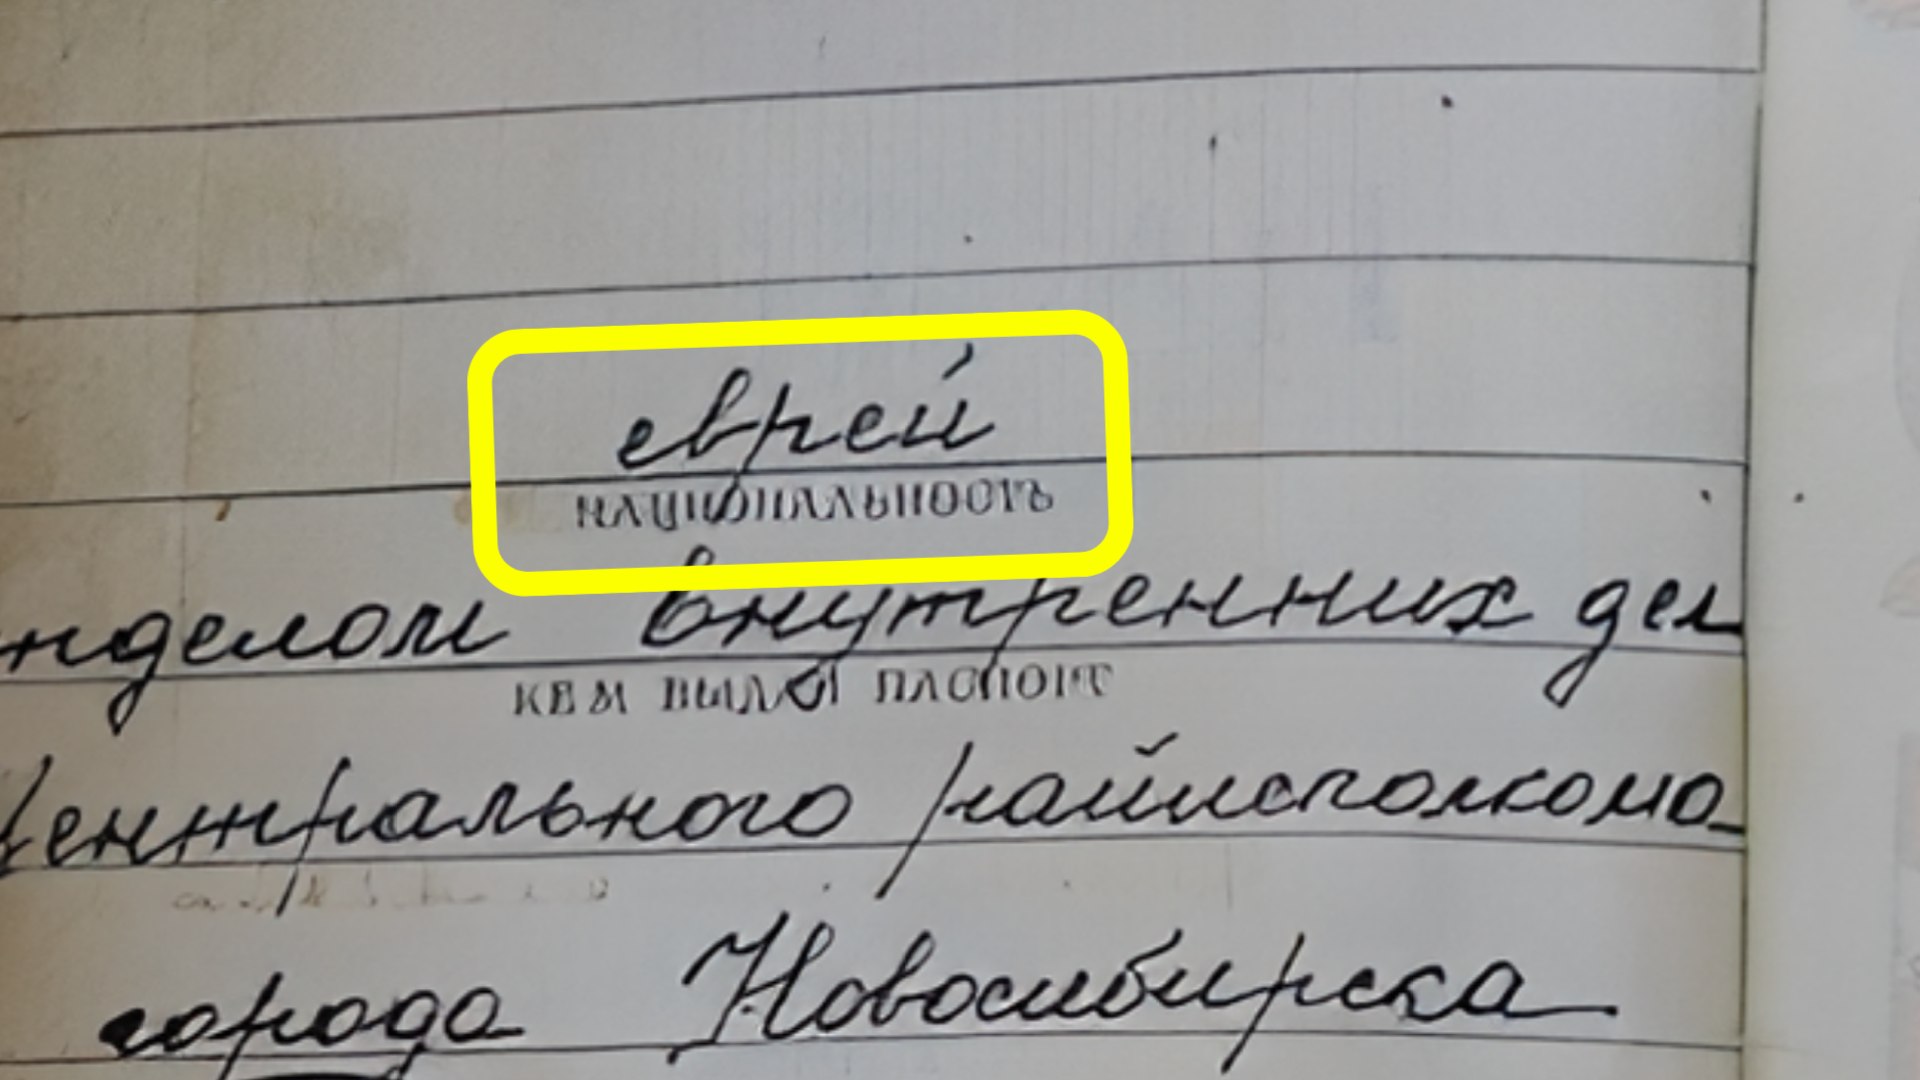 еврей
НАЦИОНАЛЬНОСТЬ
отделом внутренних дел
КЕМ ВЫДАН ПАСПОРТ
Центрального райисполкома
города Новосибирска